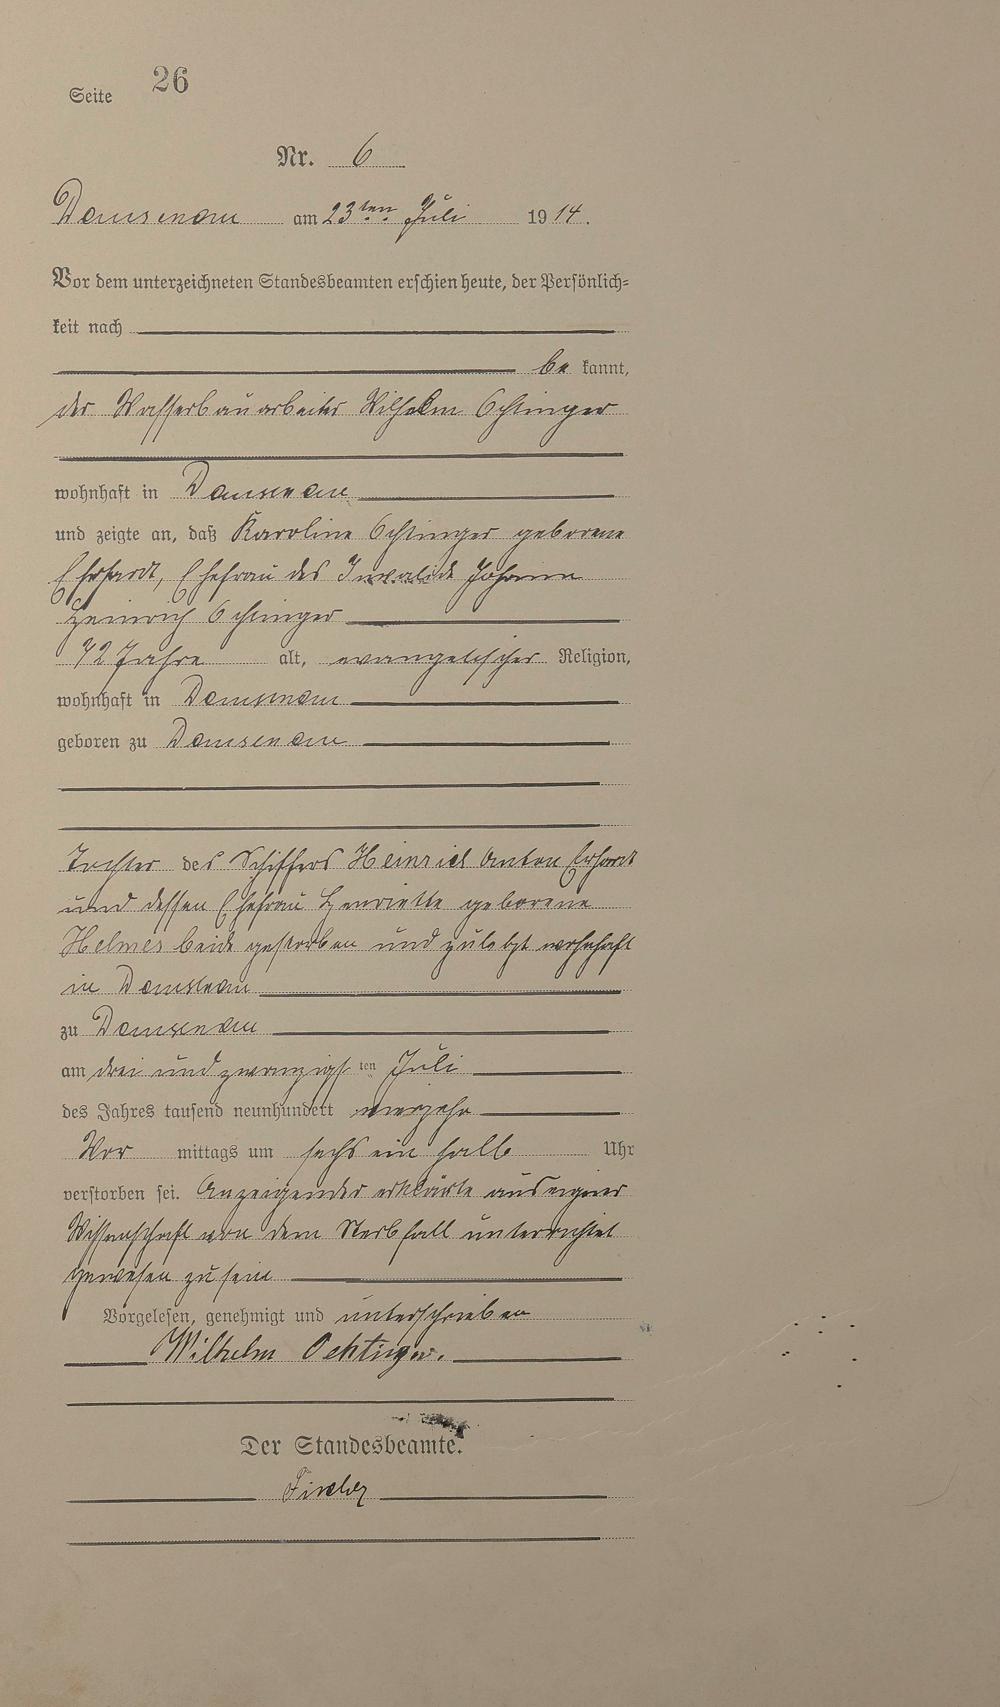 Seite 26
Nr. 6
Dausenau am 23ten Juli 1914.
Vor dem unterzeichneten Standesbeamten erschien heute, der Persönlich=
keit nach
be kannt,
der Wasserbauarbeiter Wilhelm Ochtinger
wohnhaft in Dausenau
und zeigte an, daß Karoline Ochtinger geborene
Ehrhardt, Ehefrau des Invalide Johann
Heinrich Ochtinger
72 Jahre alt, evangelischer Religion,
wohnhaft in Dausenau
geboren zu Dausenau
Tochter des Schiffers Heinrich Anton Erhardt
und dessen Ehefrau Henriette geborene
Helmes beide gestorben und zuletzt wohnhaft
in Dausenau
zu Dausenau
am drei und zwanzigsten Juli
des Jahres tausend neunhundert vierzehn
Vor mittags um sechs ein halb Uhr
verstorben sei. Anzeigender erklärte aus eigner
Wissenschaft von dem Sterbfall unterrichtet
gewesen zu sein
Vorgelesen, genehmigt und unterschrieben
Wilhelm Oehtinger.
Der Standesbeamte.